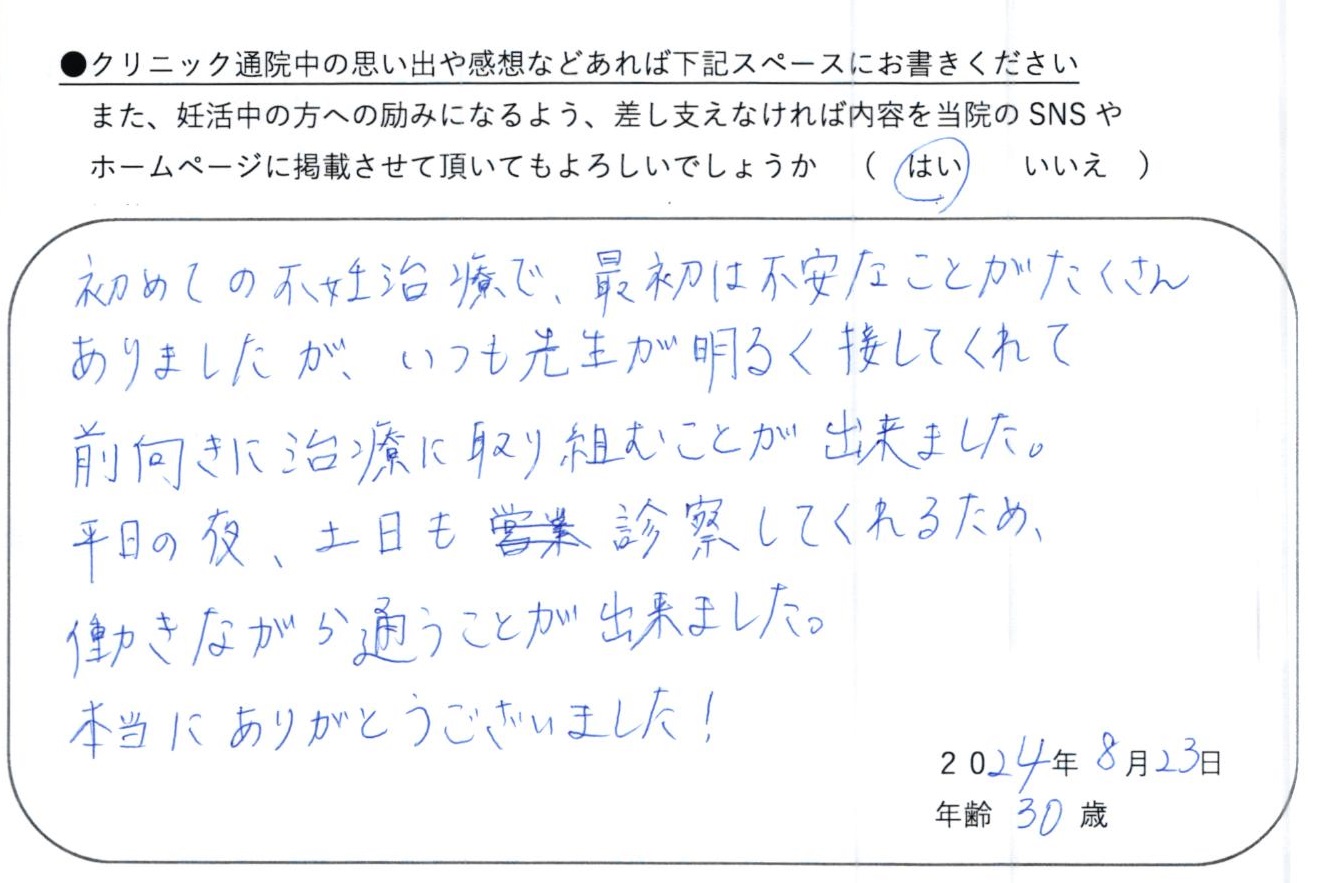 ●クリニック通院中の思い出や感想などあれば下記スペースにお書きください
また、妊活中の方への励みになるよう、差し支えなければ内容を当院のSNSや
ホームページに掲載させて頂いてもよろしいでしょうか （ はい いいえ ）
初めての不妊治療で、最初は不安なことがたくさん
ありましたが、いつも先生が明るく接してくれて
前向きに治療に取り組むことが出来ました。
平日の夜、土日も営業診察してくれるため、
働きながら通うことが出来ました。
本当にありがとうございました!
2024年8月23日
年齢 30 歳